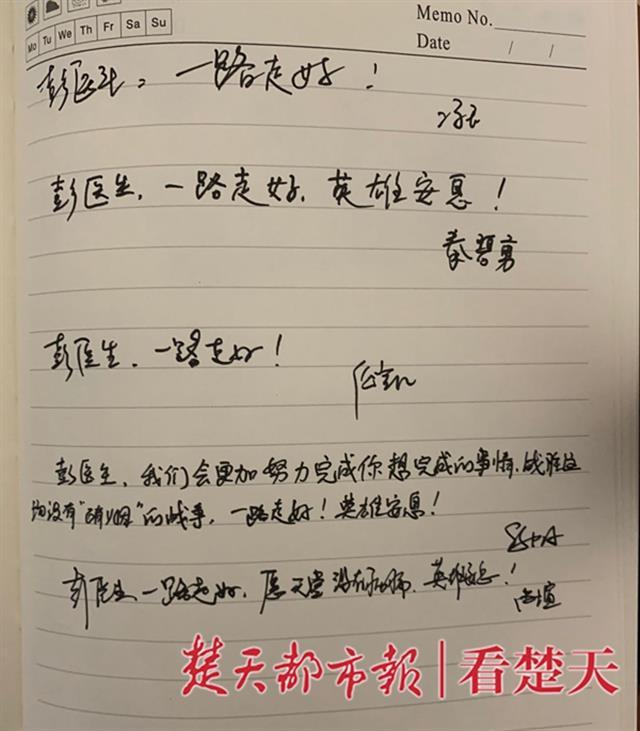 Memo No.
Mo Tu We Th Fr Sa Su
Date / /
彭医生,一路走好!
彭医生,一路走好,英雄安息!
秦哲勇
彭医生,一路走好!
彭医生,我们会更加努力完成你想完成的事情,战胜这
场没有“硝烟”的战争,一路走好!英雄安息!
彭医生,一路走好,愿天堂没有病痛,英雄安息!
楚天都市報|看楚天